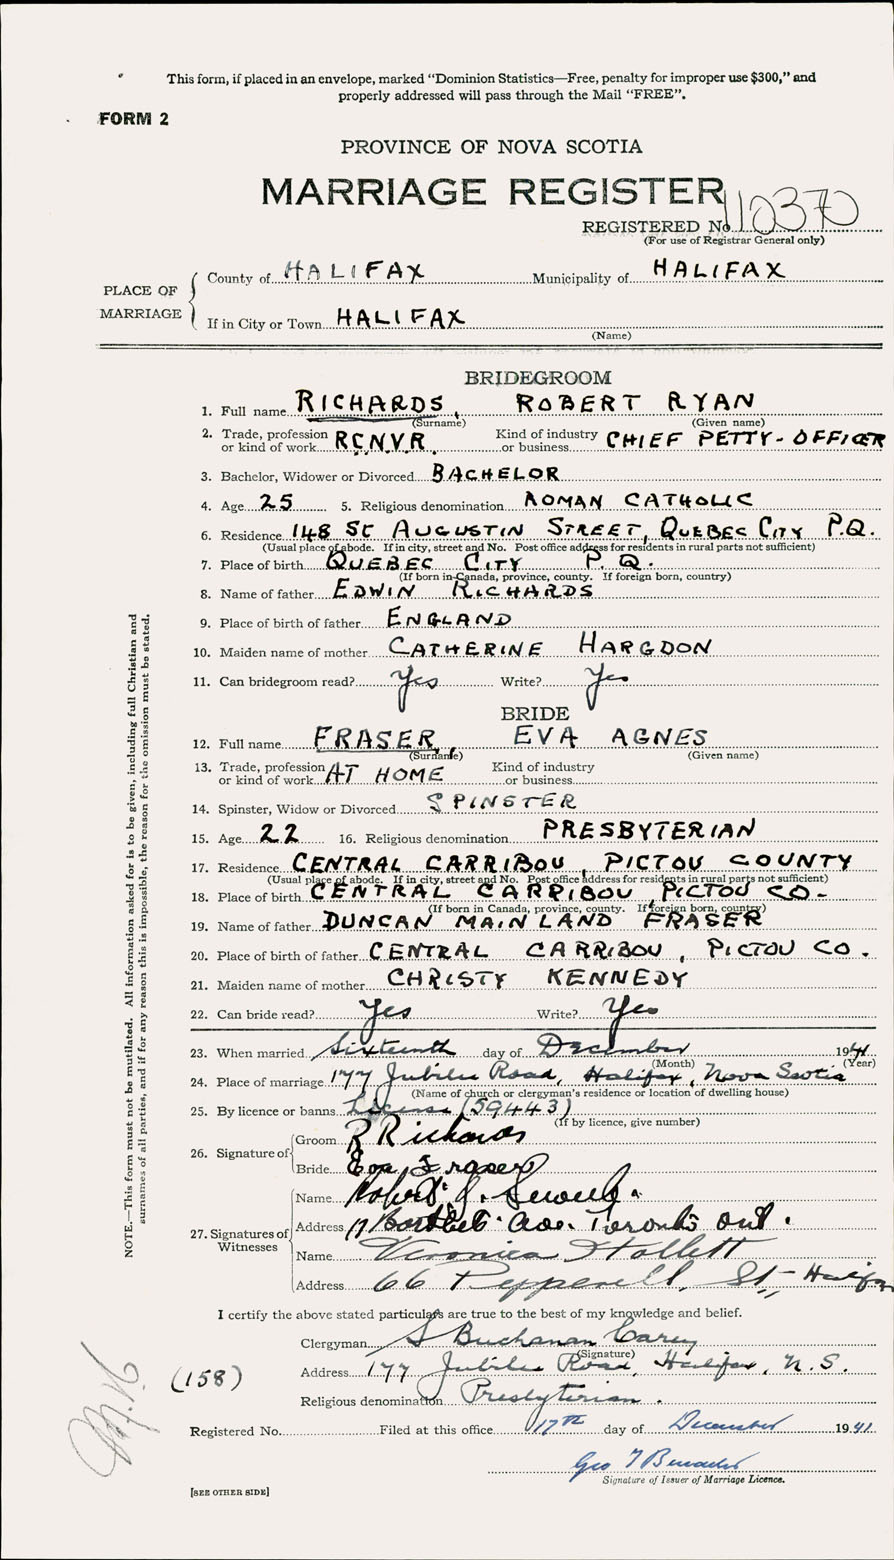 This form, if placed in an envelope, marked “Dominion Statistics—Free, penalty for improper use $300,” and
properly addressed will pass through the Mail “FREE”.
FORM 2
PROVINCE OF NOVA SCOTIA
MARRIAGE REGISTER
REGISTERED No 110370
(For use of Registrar General only)
PLACE OF MARRIAGE
County of HALIFAX Municipality of HALIFAX
If in City or Town HALIFAX
(Name)
BRIDEGROOM
1. Full name RICHARDS, ROBERT RYAN
(Surname) (Given name)
2. Trade, profession or kind of work R.C.N.V.R. Kind of industry or business CHIEF PETTY-OFFICER
3. Bachelor, Widower or Divorced BACHELOR
4. Age 25 5. Religious denomination ROMAN CATHOLIC
6. Residence 148 ST AUGUSTIN STREET, QUEBEC CITY P.Q.
(Usual place of abode. If in city, street and No. Post office address for residents in rural parts not sufficient)
7. Place of birth QUEBEC CITY P.Q.
(If born in Canada, province, county. If foreign born, country)
8. Name of father EDWIN RICHARDS
9. Place of birth of father ENGLAND
10. Maiden name of mother CATHERINE HARGDON
11. Can bridegroom read? Yes Write? Yes
BRIDE
12. Full name FRASER, EVA AGNES
(Surname) (Given name)
13. Trade, profession or kind of work AT HOME Kind of industry or business
14. Spinster, Widow or Divorced SPINSTER
15. Age 22 16. Religious denomination PRESBYTERIAN
17. Residence CENTRAL CARRIBOU, PICTOU COUNTY
(Usual place of abode. If in city, street and No. Post office address for residents in rural parts not sufficient)
18. Place of birth CENTRAL CARRIBOU, PICTOU CO.
(If born in Canada, province, county. If foreign born, country)
19. Name of father DUNCAN MAINLAND FRASER
20. Place of birth of father CENTRAL CARRIBOU, PICTOU CO.
21. Maiden name of mother CHRISTY KENNEDY
22. Can bride read? Yes Write? Yes
23. When married Sixteenth day of December 1941
(Month) (Year)
24. Place of marriage 177 Jubilee Road, Halifax, Nova Scotia
(Name of church or clergyman's residence or location of dwelling house)
25. By licence or banns License (59443)
(If by licence, give number)
26. Signature of
Groom R Richards
Bride Eva Fraser
27. Signatures of Witnesses
Name Robert J.
Address 17 Bartlett Ave. Toronto Ont.
Name Veronica Hollett
Address 66 Pepperell St., Halifax
I certify the above stated particulars are true to the best of my knowledge and belief.
Clergyman S Buchanan Carey
(Signature)
Address 177 Jubilee Road, Halifax, N.S.
(158)
Religious denomination Presbyterian.
Registered No. Filed at this office 17th day of December 1941
Geo T
Signature of Issuer of Marriage Licence.
[SEE OTHER SIDE]
NOTE.—This form must not be mutilated. All information asked for is to be given, including full Christian and
surnames of all parties, and if for any reason this is impossible, the reason for the omission must be stated.